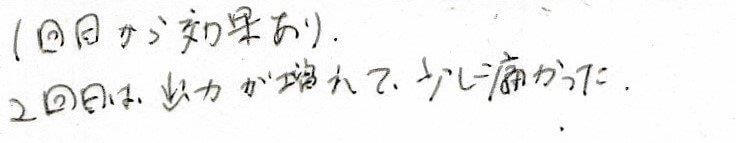 1回目から効果あり.
2回目は、出力が増えて、少し痛かった.